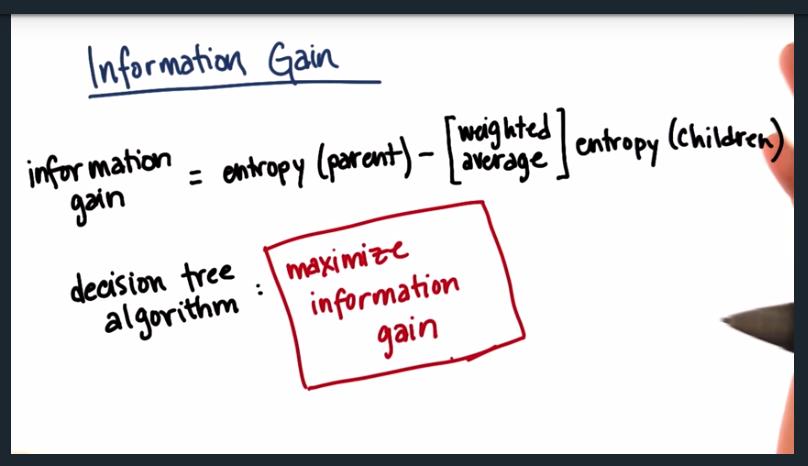 Information Gain
information gain = entropy (parent) - [weighted average] entropy (children)
decision tree algorithm : maximize information gain